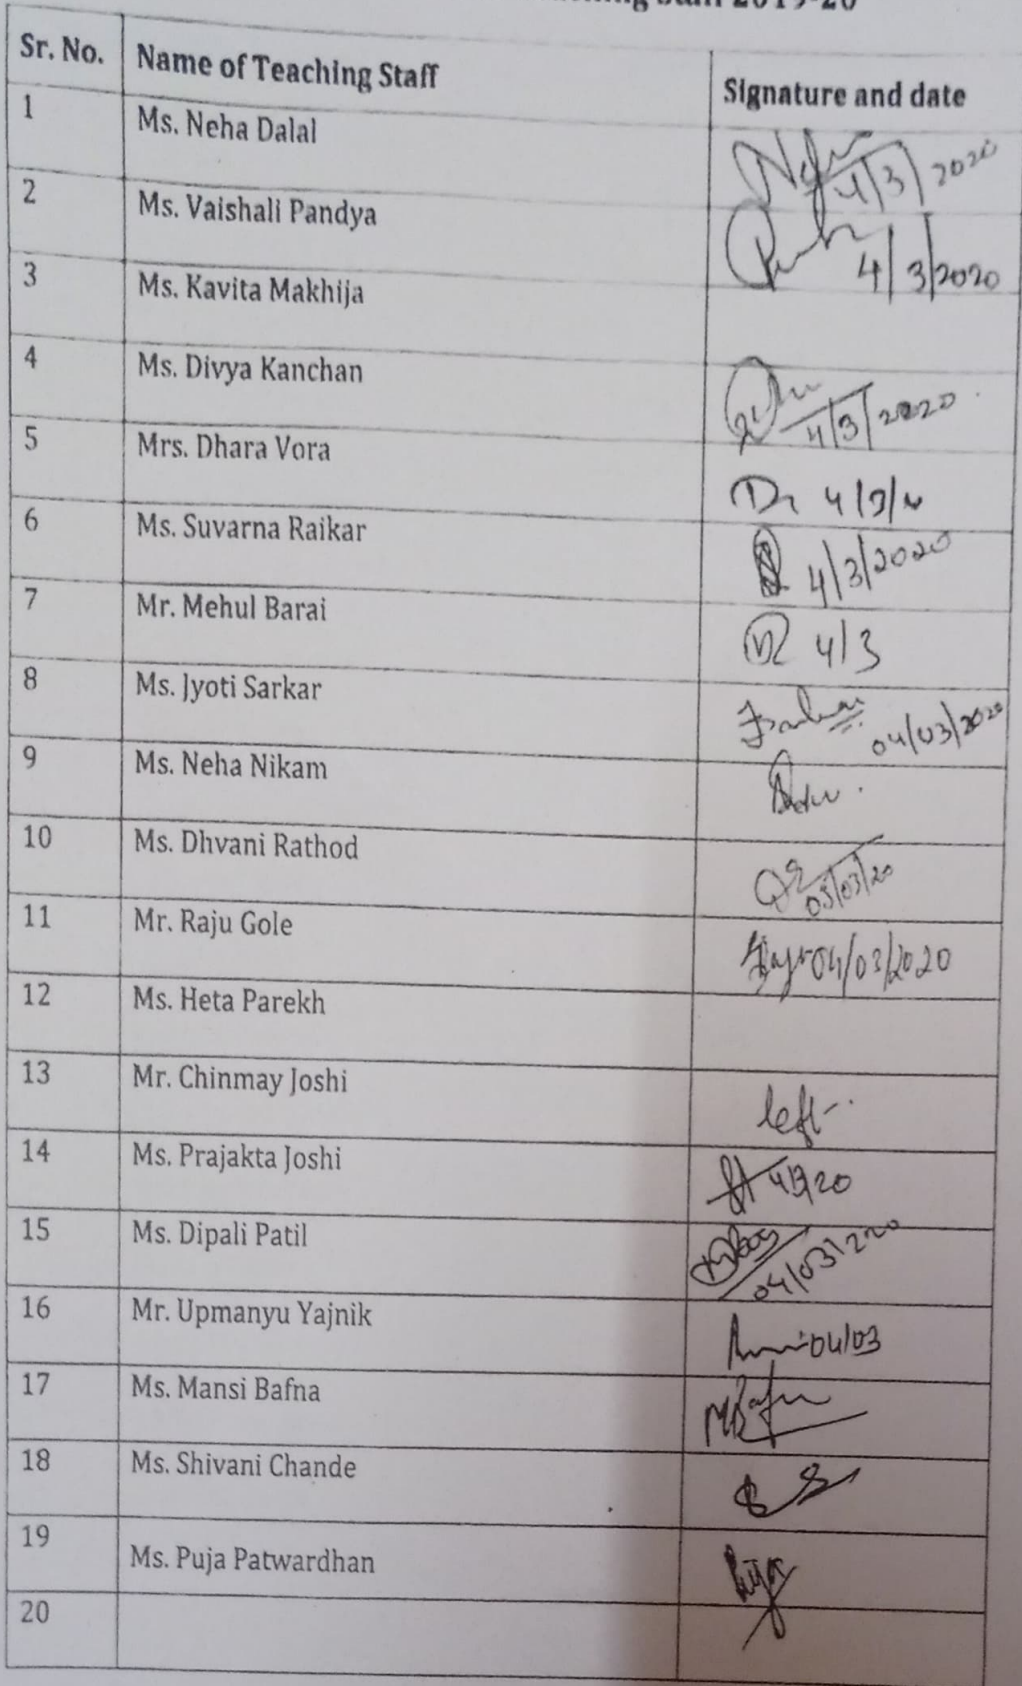 Staff 2019-20
Sr. No. Name of Teaching Staff Signature and date
1 Ms. Neha Dalal 4/3/2020
2 Ms. Vaishali Pandya 4/3/2020
3 Ms. Kavita Makhija
4 Ms. Divya Kanchan 4/3/2020
5 Mrs. Dhara Vora 4/3/
6 Ms. Suvarna Raikar 4/3/2020
7 Mr. Mehul Barai 4/3
8 Ms. Jyoti Sarkar 04/03/2020
9 Ms. Neha Nikam
10 Ms. Dhvani Rathod 03/20
11 Mr. Raju Gole 04/03/2020
12 Ms. Heta Parekh
13 Mr. Chinmay Joshi left
14 Ms. Prajakta Joshi 4/3/20
15 Ms. Dipali Patil 04/03/220
16 Mr. Upmanyu Yajnik 04/03
17 Ms. Mansi Bafna
18 Ms. Shivani Chande
19 Ms. Puja Patwardhan
20